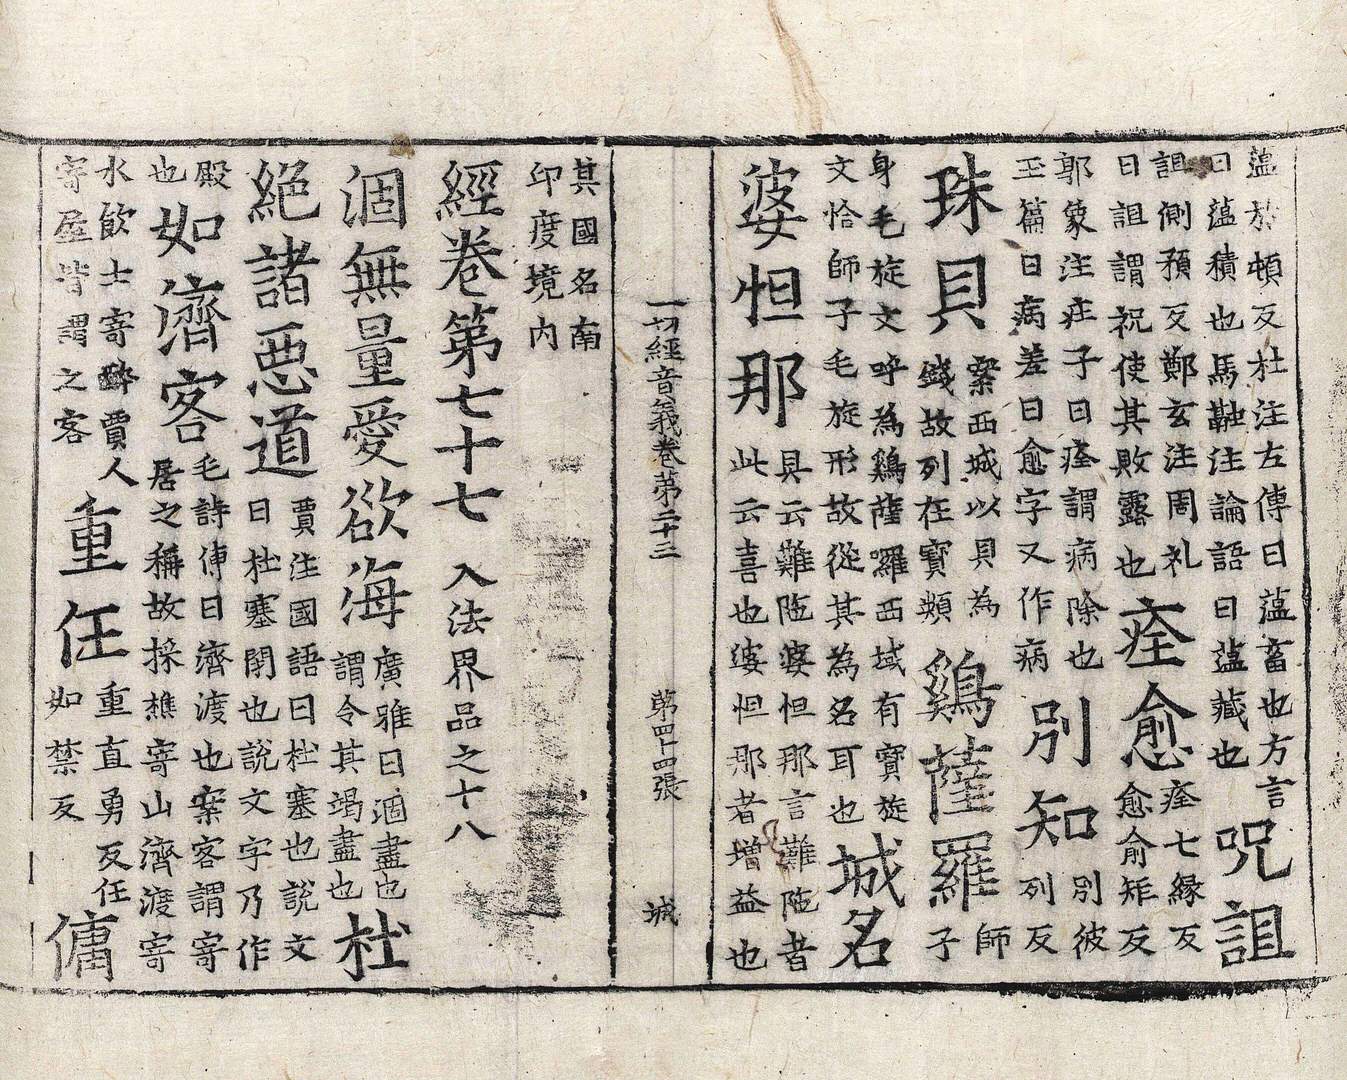 蕰於頓反杜注左傳曰蕰畜也方言
曰蕰積也馬融注論語曰蕰藏也
呪詛
詛側預反鄭玄注周礼
曰詛謂祝使其敗露也
痊愈
痊七縁反
愈俞矩反
郭象注庄子曰痊謂病除也
玉篇曰病差曰愈字又作病
別知
別彼
列反
珠貝
案西城以貝為
錢故列在寶類
鷄薩羅
師
子
身毛旋文呼為鷄薩囉西域有寶旋
文恰師子毛旋形故從其為名耳也
城名
婆怛那
具云難陁婆怛那言難陁者
此云喜也婆怛那者增益也
一切經音義卷苐二十三 苐四十四張 城
其國名南
印度境内
經卷第七十七 入法界品之十八
涸無量愛欲海
廣雅曰涸盡也
謂令其竭盡也
杜
絕諸惡道
賈注國語曰杜塞也說文
曰杜塞閇也說文字乃作
殿
也
如濟客
毛詩傳曰濟渡也案客謂寄
居之稱故採樵寄山濟渡寄
水飲士寄醉賈人
寄屋皆謂之客
重任
重直勇反任
如禁反
傭